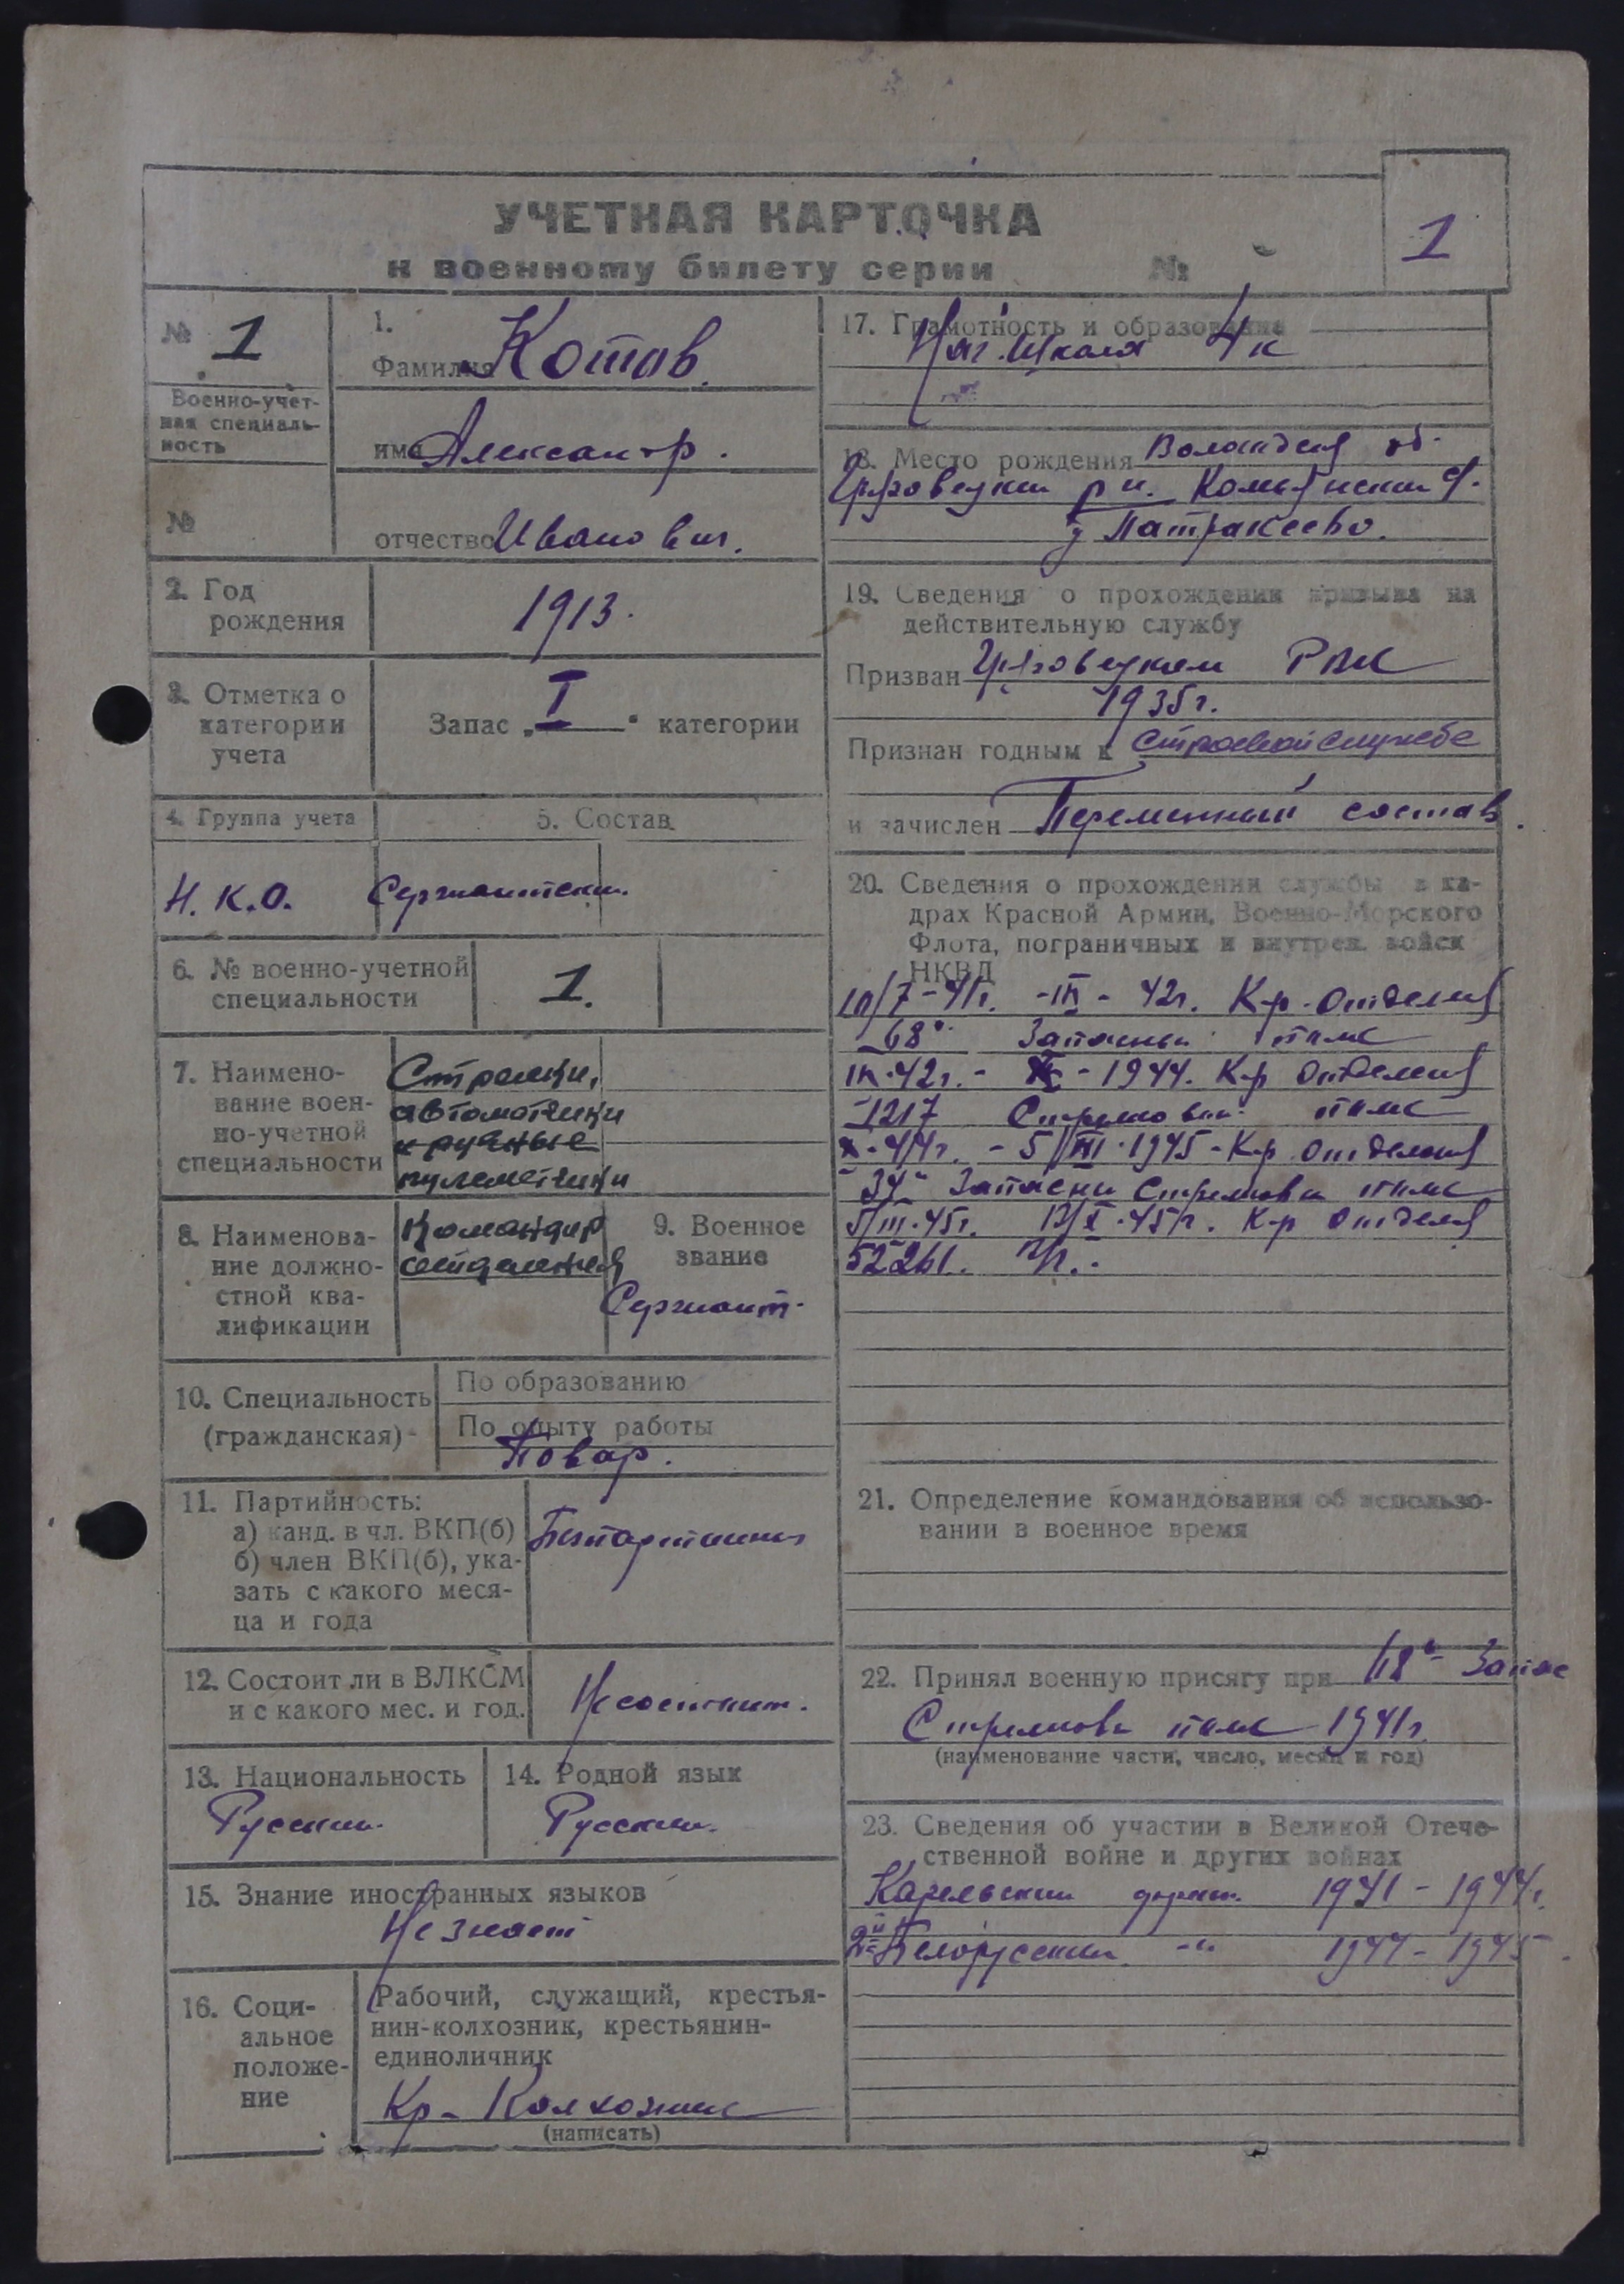 УЧЕТНАЯ КАРТОЧКА
к военному билету серии №
1
№ 1
Военно-учет-
ная специаль-
ность
№
1.
Фамилия Котов.
имя Александр.
отчество Иванович.
2. Год
рождения
1913.
3. Отметка о
категории
учета
Запас „I" категории
4. Группа учета
5. Состав
Н.К.О.
Сержантский.
6. № военно-учетной
специальности
1.
7. Наимено-
вание воен-
но-учетной
специальности
Стрелки,
автоматчики
и ручные
пулеметчики
8. Наименова-
ние должно-
стной ква-
лификации
Командир
отделения
9. Военное
звание
Сержант.
10. Специальность
(гражданская)
По образованию
По опыту работы
Повар.
11. Партийность:
а) канд. в чл. ВКП(б)
б) член ВКП(б), ука-
зать с какого меся-
ца и года
Безпартийный
12. Состоит ли в ВЛКСМ
и с какого мес. и год.
Не состоит.
13. Национальность
Русский.
14. Родной язык
Русский.
15. Знание иностранных языков
Не знает
16. Соци-
альное
положе-
ние
Рабочий, служащий, крестья-
нин-колхозник, крестьянин-
единоличник
Кр-Колхозник
(написать)
17. Грамотность и образование
Нач. Школа 4 к
18. Место рождения Вологодская об.
Грязовецкий р н. Комьянский с/с.
д Патракеево.
19. Сведения о прохождении призыва на
действительную службу
Призван Грязовецким РВК
1935г.
Признан годным к строевой службе
и зачислен Переменный состав.
20. Сведения о прохождении службы в ка-
драх Красной Армии, Военно-Морского
Флота, пограничных и внутрен. войск
НКВД
7-41г. -IX- 42г. К-р отделения
Запасный полк
IX-42г. - X - 1944. К-р отделения
1217 Стрелковый полк
X-44г. - 5/III-1945 - К-р отделения
34" Запасный Стрелковый полк
5/III-45г. X-45г. К-р отделения
52261. П/П.
21. Определение командования об использо-
вании в военное время
22. Принял военную присягу при Запас
Стрелковый полк 1941г.
(наименование части, число, месяц и год)
23. Сведения об участии в Великой Отече-
ственной войне и других войнах
Карельский фронт. 1941 - 1944г.
2й Белорусский -"- 1944 - 1945.